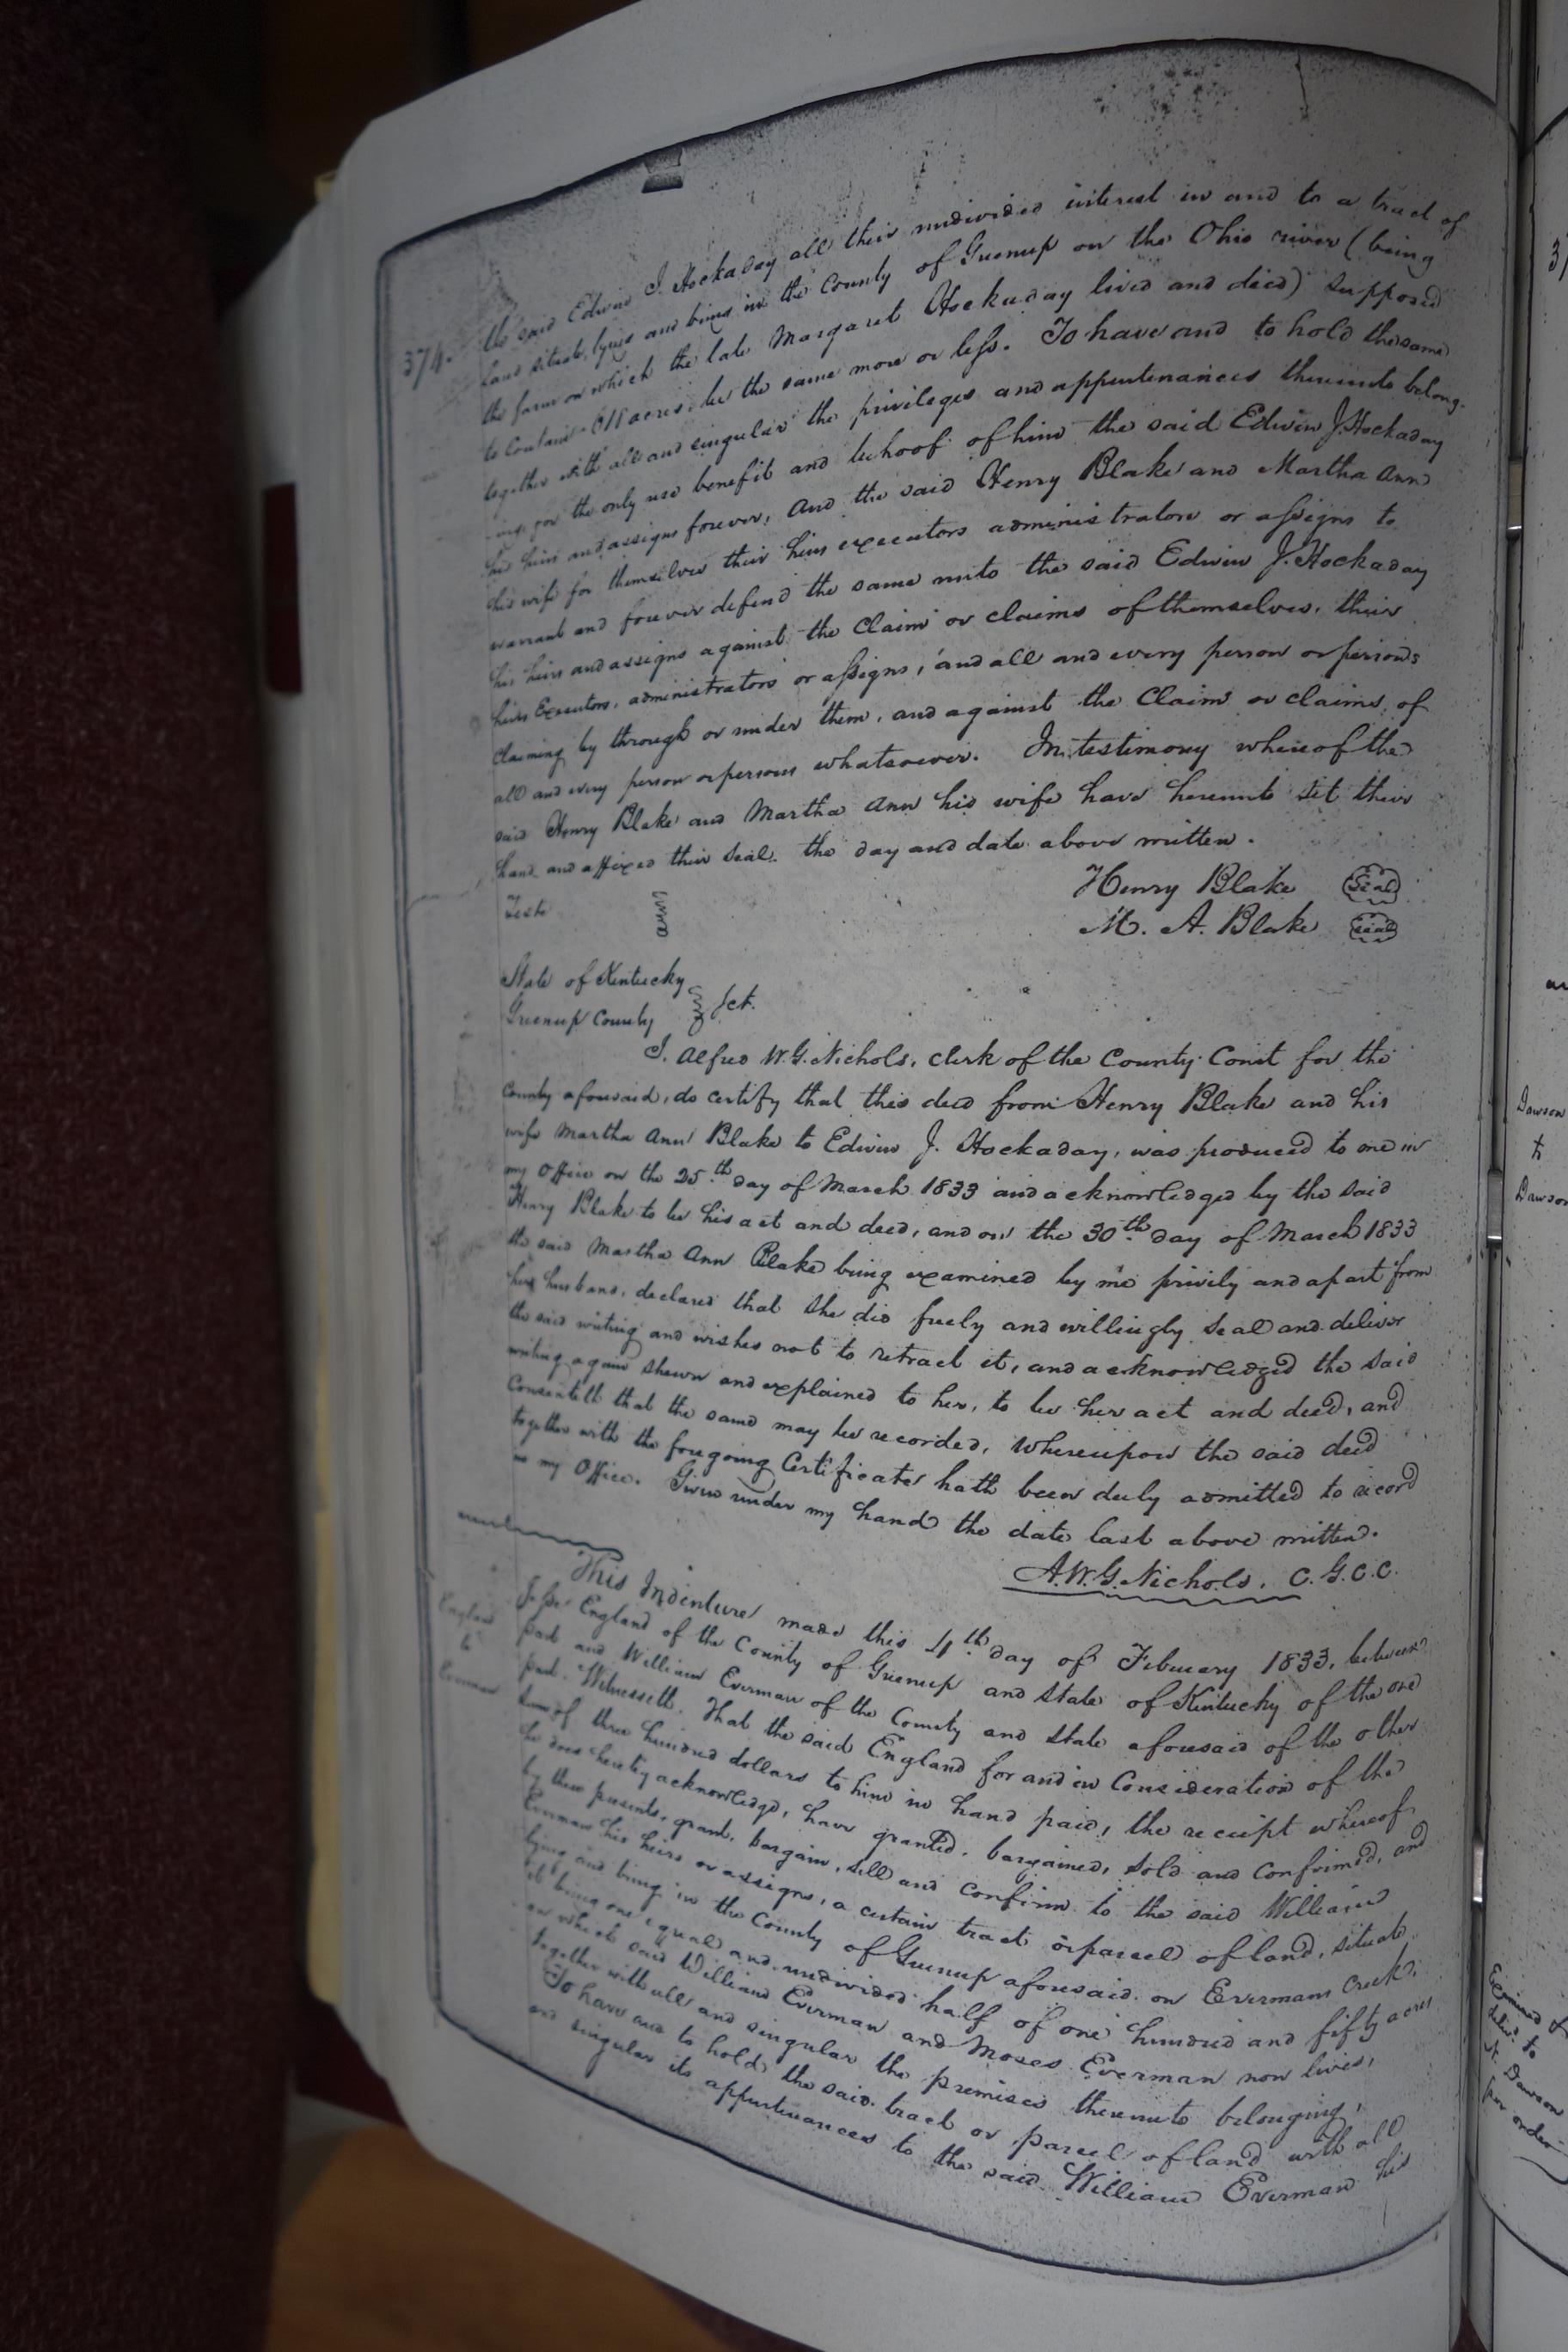 374.
the said Edwin J. Hockaday all their undivided interest in and to a tract of
land situate, lying and being in the County of Greenup on the Ohio river (being
the farm on which the late Margaret Hockaday lived and died) supposed
to contain acres, be the same more or less. To have and to hold the same
together with all and singular the privileges and appurtenances thereunto belong-
-ing, for the only use benefit and behoof of him the said Edwin J. Hockaday
his heirs and assigns forever, And the said Henry Blake and Martha Ann
his wife for themselves their heirs executors administrators or assigns to
warrant and forever defend the same unto the said Edwin J. Hockaday
his heirs and assigns against the Claim or claims of themselves, their
heirs Executors, administrators or assigns, and all and every person or persons
claiming by through or under them, and against the Claim or claims of
all and every person or persons whatsoever. In testimony whereof the
said Henry Blake and Martha Ann his wife have hereunto set their
hand and affixed their seal. the day and date above written.
Henry Blake Seal
Teste
M. A. Blake Seal
State of Kentucky
Greenup County Sct.
I, Alfred W. G. Nichols, clerk of the County Court for the
County aforesaid, do certify that this deed from Henry Blake and his
wife Martha Ann Blake to Edwin J. Hockaday, was produced to me in
my Office on the 25th day of March 1833 and acknowledged by the said
Henry Blake to be his act and deed, and on the 30th day of March 1833
the said Martha Ann Blake being examined by me privily and apart from
her husband, declared that she did freely and willingly seal and deliver
the said writing and wishes not to retract it, and acknowledged the said
writing again shewn and explained to her, to be her act and deed, and
consenteth that the same may be recorded, Whereupon the said deed
together with the foregoing Certificate hath been duly admitted to record
in my Office. Given under my hand the date last above written.
A. W. G. Nichols, C. G. C. C.
England
to
Everman
This Indenture made this 4th day of February 1833, between
Jesse England of the County of Greenup and State of Kentucky of the one
part and William Everman of the County and State aforesaid of the other
part. Witnesseth. That the said England for and in Consideration of the
sum of three hundred dollars to him in hand paid, the receipt whereof
he does hereby acknowledge, have granted, bargained, sold and confirmed, and
by these presents, grant, bargain, sell and confirm to the said William
Everman his heirs or assigns, a certain tract or parcel of land, situate
lying and being in the County of Greenup aforesaid, on Evermans Creek,
it being one equal and undivided half of one hundred and fifty acres
on which said William Everman and Moses Everman now lives,
together with all and singular the premises thereunto belonging,
To have and to hold the said tract or parcel of land with all
and singular its appurtenances to the said William Everman his
Dawson
to
Dawson
Examined &
deliv. to
Dawson
per order